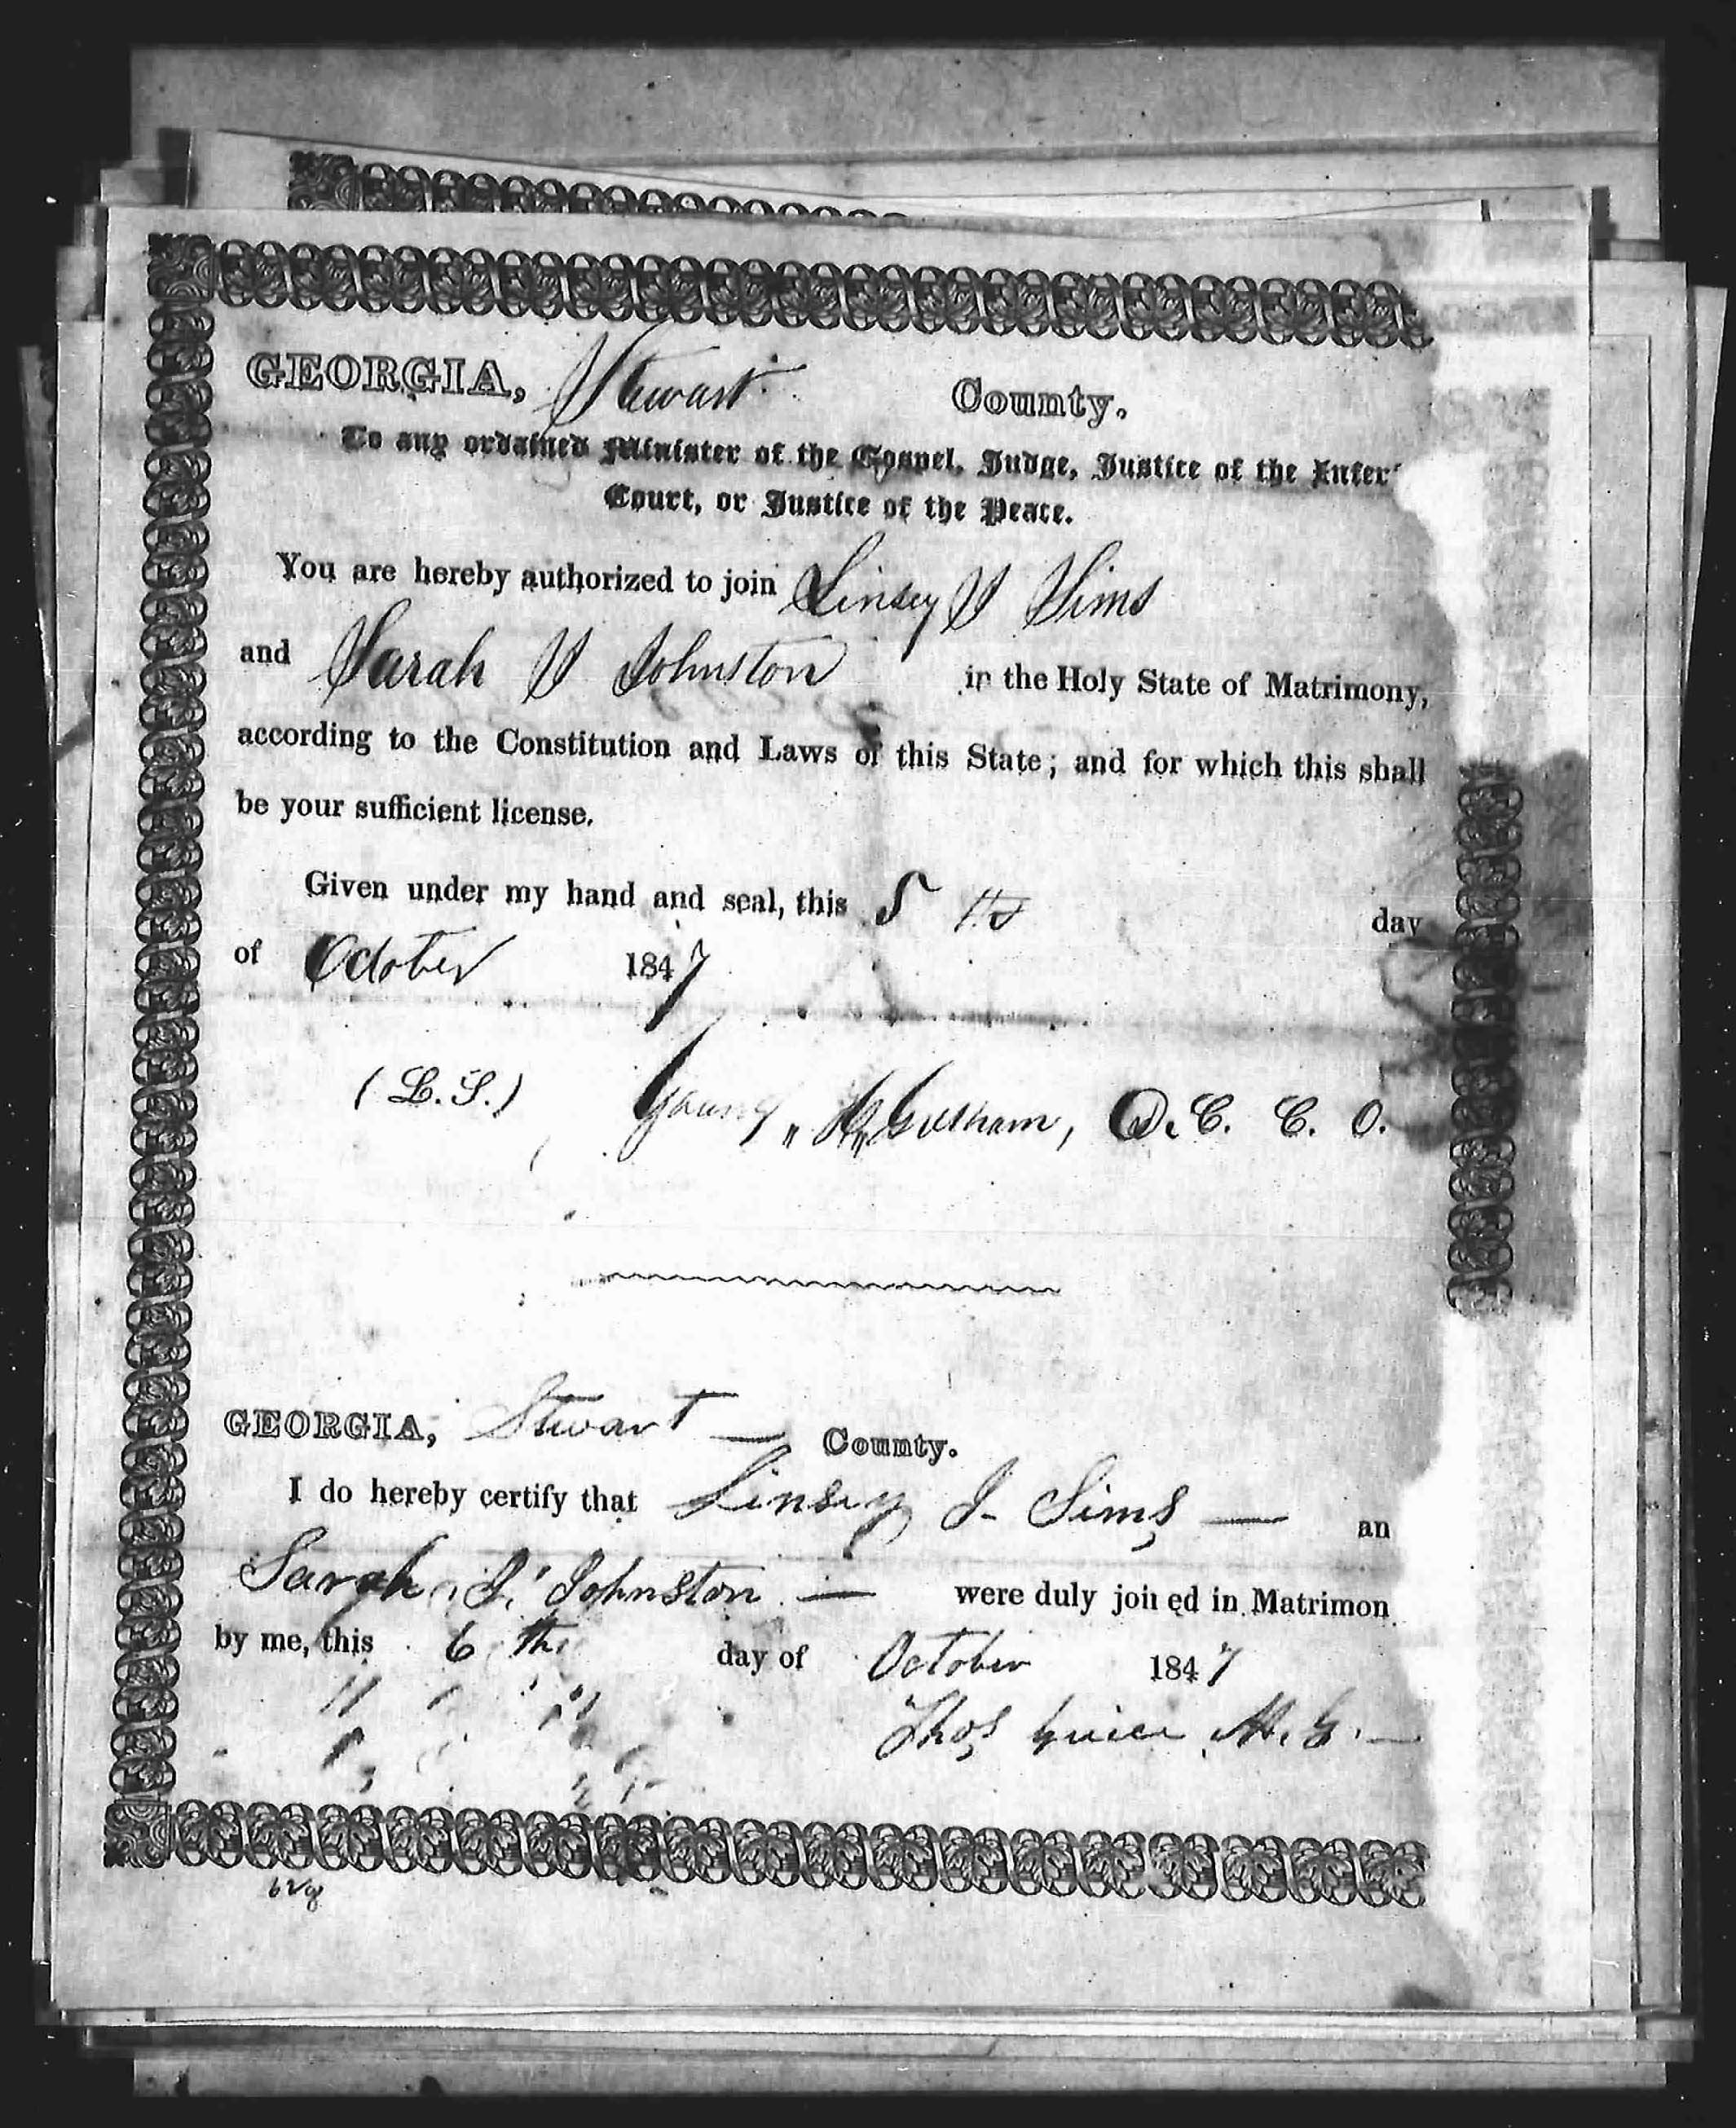 GEORGIA, Stewart County.
To any ordained Minister of the Gospel, Judge, Justice of the Infer'
Court, or Justice of the Peace.
You are hereby authorized to join Linsey J Sims
and Sarah J Johnston in the Holy State of Matrimony,
according to the Constitution and Laws of this State; and for which this shall
be your sufficient license.
Given under my hand and seal, this 5 th day
of October 1847
(L.S.) Young C. C. O.
GEORGIA, Stewart County.
I do hereby certify that Linsey J- Sims — an
Sarah J. Johnston — were duly joined in Matrimon
by me, this 6 th day of October 1847
Thos Guice M. G. —